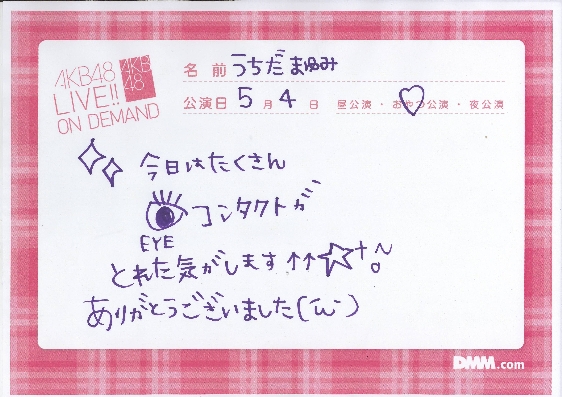 AKB48
LIVE!!
ON DEMAND
AKB
48
名前 うちだまゆみ
公演日 5月4日 昼公演・おやつ公演・夜公演
今日はたくさん
コンタクトが
EYE
とれた気がします↑↑☆+。~
ありがとうございました(˘ω˘)
DMM.com